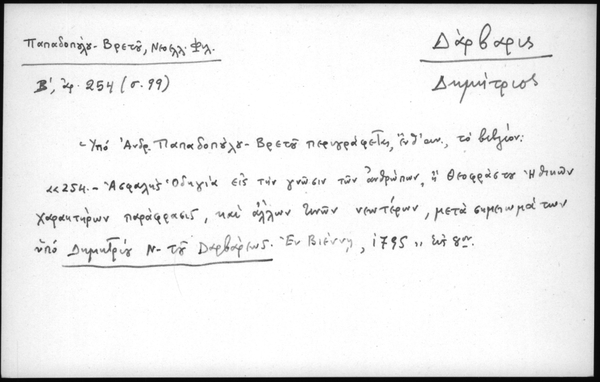 Παπαδοπούλου-Βρετοῦ, Νεοελλ. Φιλ.
Δάρβαρις
Β', ἀρ. 254 (σ. 99)
Δημήτριος
Ὑπό Ἀνδρ. Παπαδοπούλου-Βρετοῦ περιγράφεται, ἔνθ' ἀν., τό βιβλίον:
«254.- Ἀσφαλής Ὁδηγία εἰς τήν γνῶσιν τῶν ἀνθρώπων, ἤ Θεοφράστου Ἠθικῶν
χαρακτήρων παράφρασις, καί ἄλλων τινῶν νεωτέρων, μετά σημειωμάτων
ὑπό Δημητρίου Ν- τοῦ Δαρβάρεως. Ἐν Βιέννῃ, 1795» εἰς 8ον.